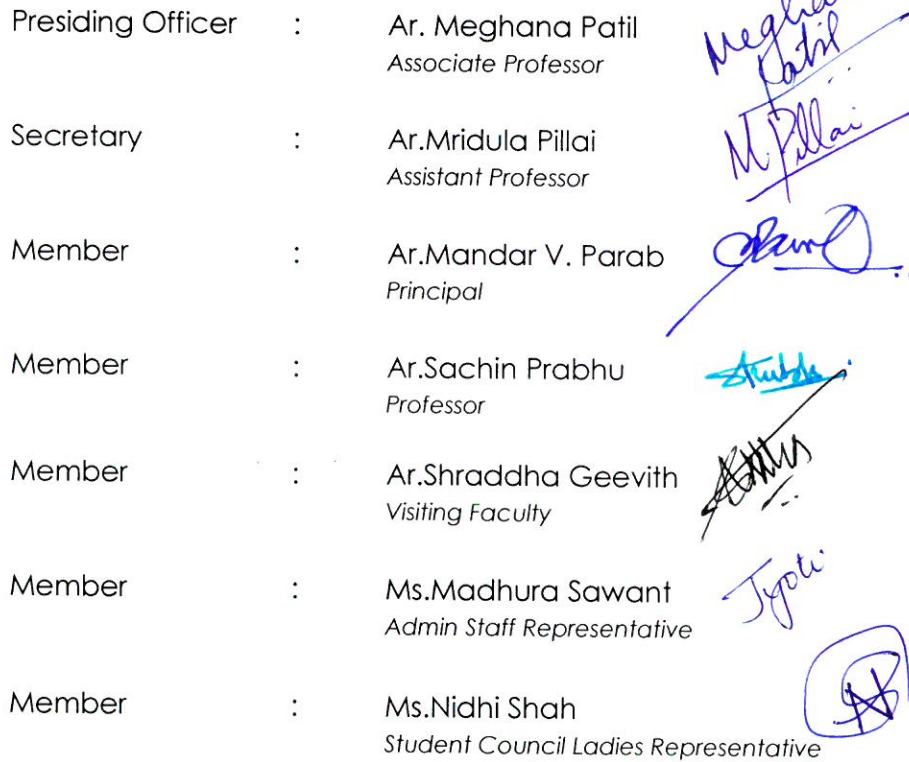 Presiding Officer : Ar. Meghana Patil
Associate Professor
Meghana
Patil
Secretary : Ar.Mridula Pillai
Assistant Professor
M. Pillai
Member : Ar.Mandar V. Parab
Principal
Member : Ar.Sachin Prabhu
Professor
Member : Ar.Shraddha Geevith
Visiting Faculty
Member : Ms.Madhura Sawant
Admin Staff Representative
Jyoti
Member : Ms.Nidhi Shah
Student Council Ladies Representative